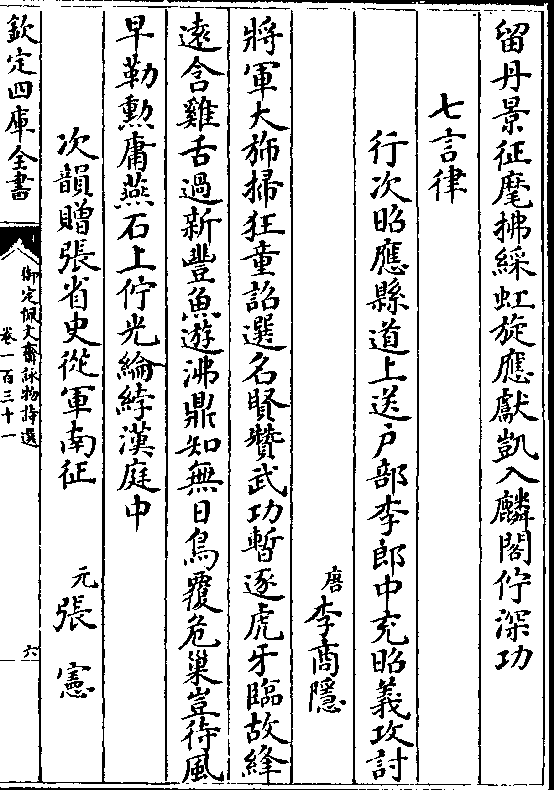 留丹景征麾拂綵虹旋應獻凱入麟閣佇深功
七言律
行次昭應縣道上送户部李郎中充昭義攻討
唐李商隱
將軍大斾掃狂童詔選名賢贊武功暫逐虎牙臨故絳
逺含雞舌過新豐魚遊沸鼎知無日鳥覆危巢豈待風
早勒勲庸燕石上佇光綸綍漢庭中
次韻贈張省史從軍南征 元張憲
欽定四庫全書
御定佩文齋詠物詩選
卷一百三十一
六